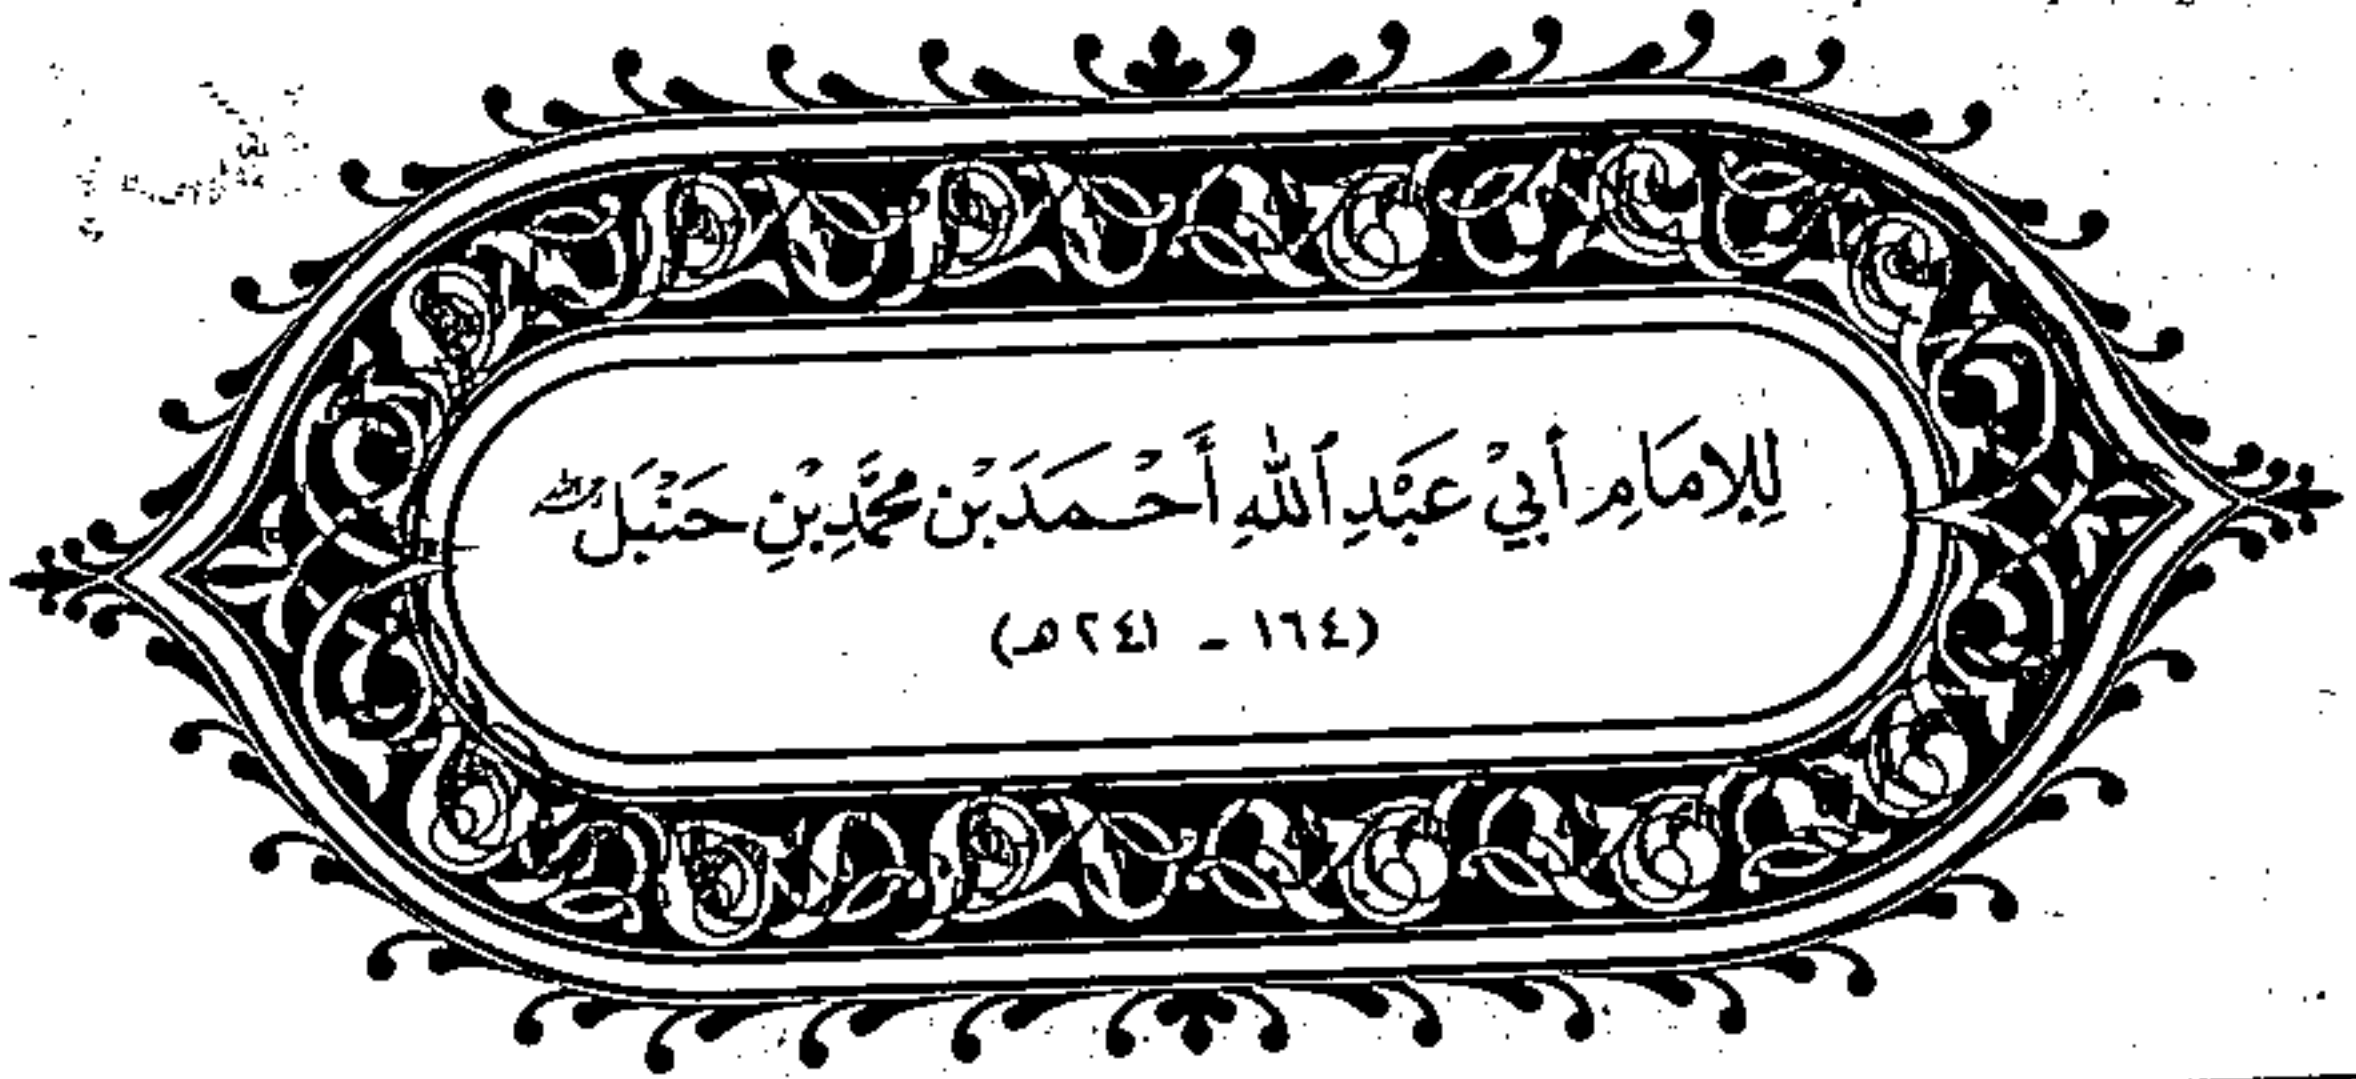 لِلإمَامِ أَبيْ عَبْدِ ٱللهِ أَحْمَدَ بْن محمَّدِ بْنِ حَنْبَل
(١٦٤ - ٢٤١ هـ)